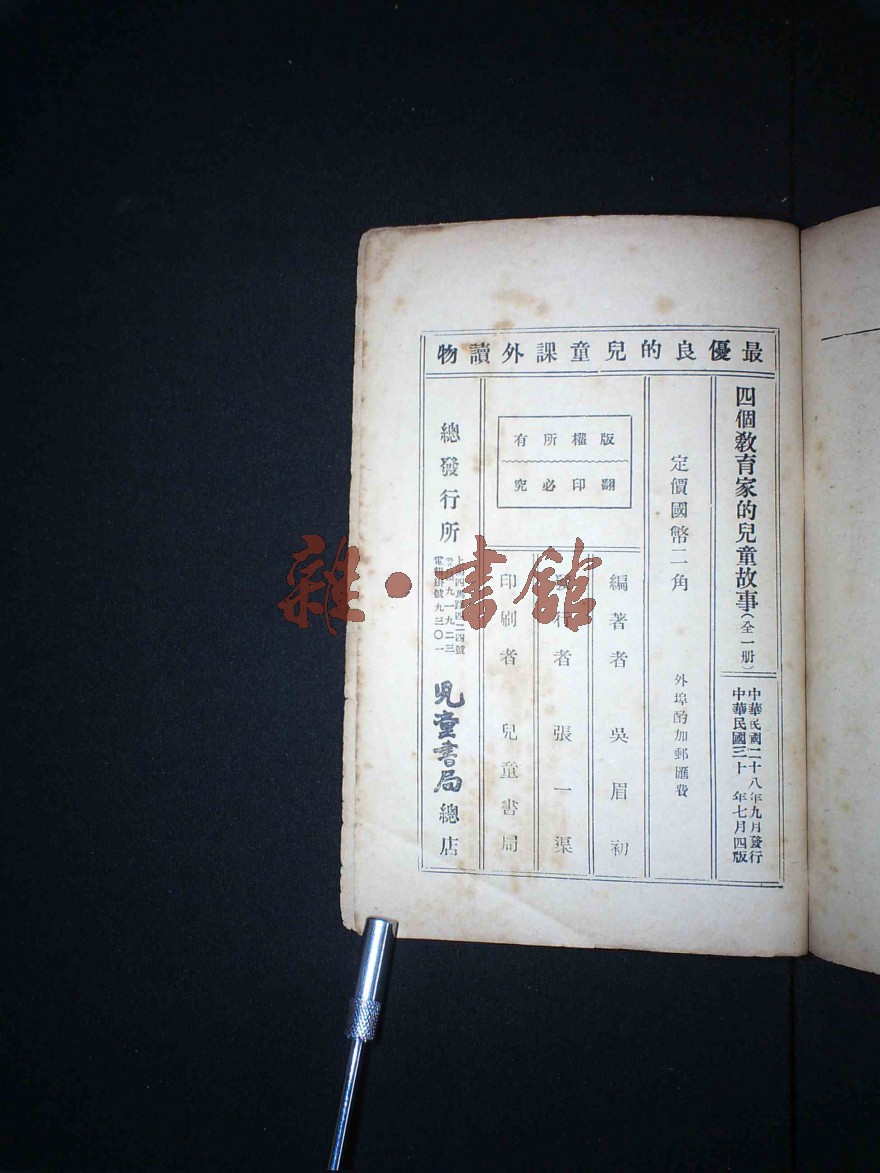 最優良的兒童課外讀物
四個教育家的兒童故事(全一册)
中華民國二十八年九月發行
中華民國三十年七月四版
定價國幣二角
外埠酌加郵匯費
版權所有
翻印必究
編著者 吳眉初
行者 張一渠
印刷者 兒童書局
總發行所
上四馬路四二四號
九一九二三
電報掛號九三〇一
兒童書局總店
雜·書館